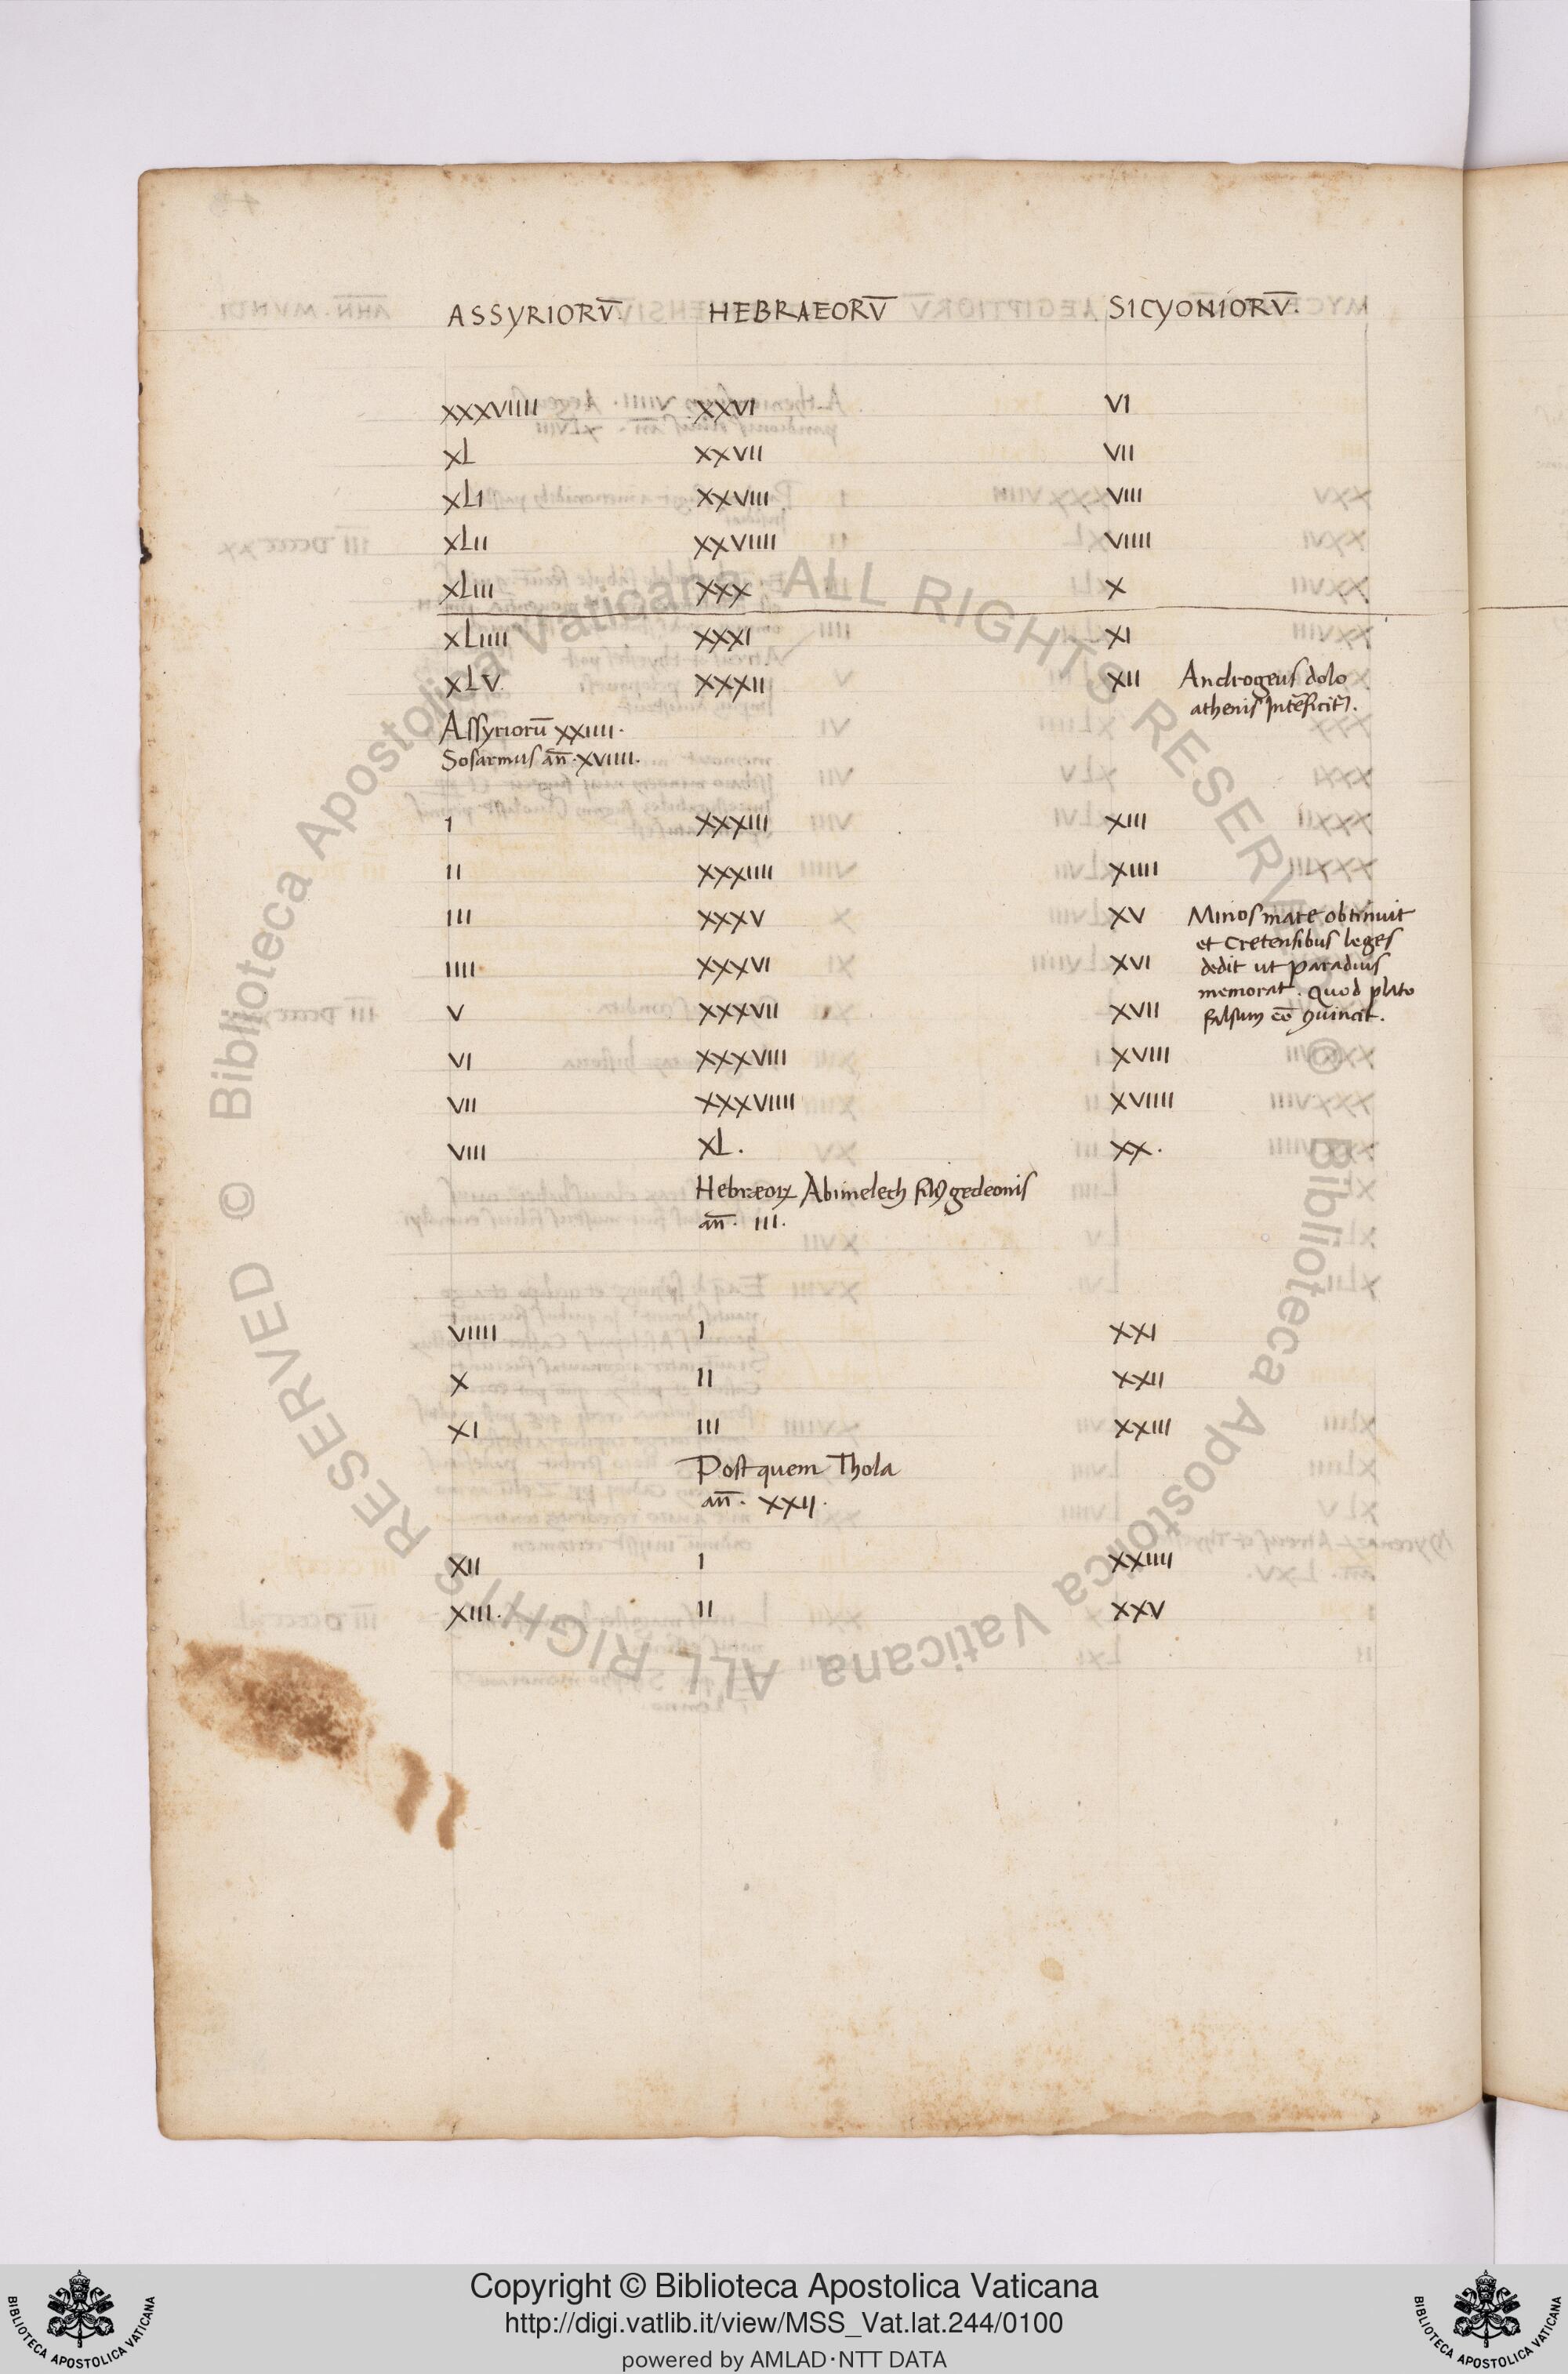 ASSYRIORV̅. HEBRAEORV̅ SICYONIORV̅.
XXXVIIII XXVI VI
XL XXVII VII
XLI XXVIII VIII
XLII XXVIIII VIIII
XLIII XXX X
XLIIII XXXI XI
XLV XXXII XII Androgeus dolo
athenis
Assyrioru̅ XXIIII.
Sosarmus an̅. XVIIII.
I XXXIII XIII
II XXXIIII XIIII
III XXXV XV Minos mare obtinuit
et Cretensibus leges
IIII XXXVI XVI dedit ut paradius
memorat. Quod plato
V XXXVII XVII falsum eē ꝯuincit.
VI XXXVIII XVIII
VII XXXVIIII XVIIII
VIII XL. XX.
Hebraeoꝝ Abimelech gedeonis
an̅. III.
VIIII I XXI
X II XXII
XI III XXIII
Post quem Thola
an̅. XXII.
XII I XXIIII
XIII. II XXV
© Biblioteca Apostolica Vaticana ALL RIGHTS RESERVED
© Biblioteca Apostolica Vaticana ALL RIGHTS RESERVED
Copyright © Biblioteca Apostolica Vaticana
http://digi.vatlib.it/view/MSS_Vat.lat.244/0100
powered by AMLAD·NTT DATA
BIBLIOTECA APOSTOLICA VATICANA
BIBLIOTECA APOSTOLICA VATICANA